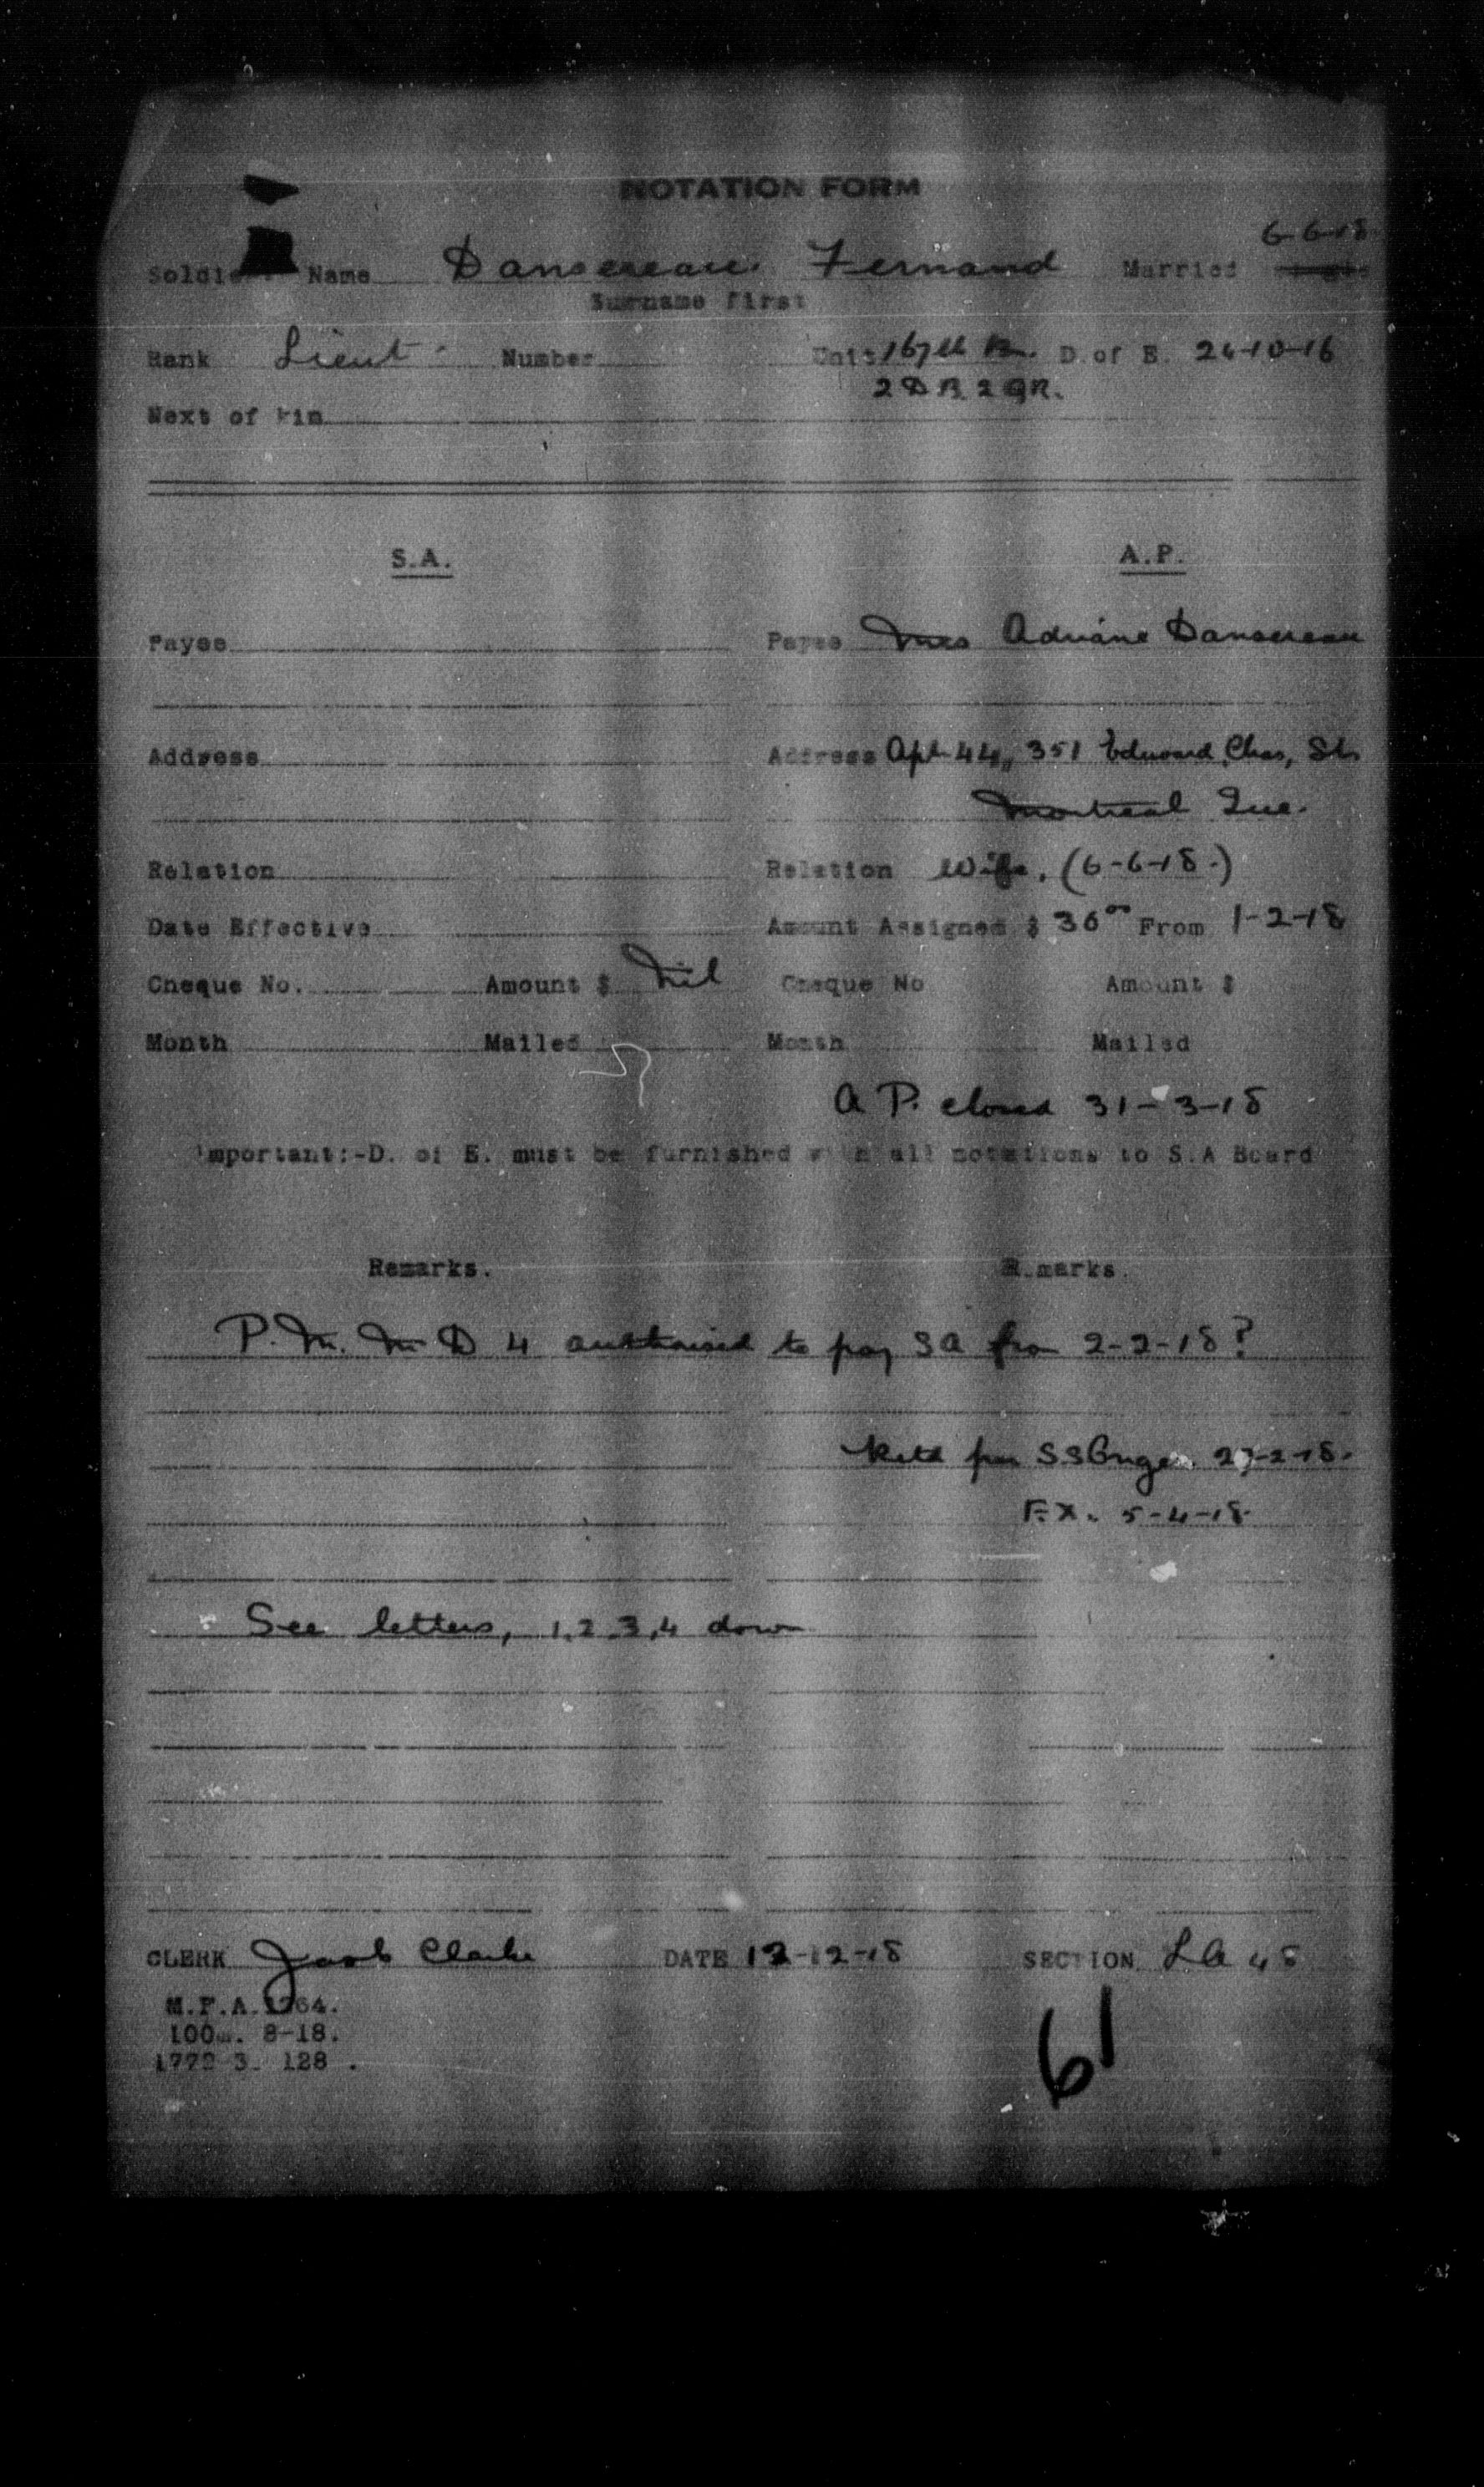 NOTATION FORM
6-6-18
Soldier Name Dansereau Fernand Married
Surname first
Rank Lieut. Number Unit 167th Bn. D. of E. 26-10-16
2 D B. 2 QR.
Next of kin
S.A. A.P.
Payee Payee Mrs Adriane Dansereau
Address Address Apt 44, 351 Edward Chas, St.
Montreal Que.
Relation Relation Wife. (6-6-18.)
Date Effective Amount Assigned $ 30 00 From 1-2-18
Cheque No. Amount $ Nil Cheque No Amount $
Month Mailed Month Mailed
A P. closed 31-3-18
Important:-D. of E. must be furnished with all notations to S.A Board
Remarks. Remarks.
P. M. M D 4 authorised to pay SA from 2-2-18?
Retd per SS 27-2-18.
F.X. 5-4-18
See letters, 1,2,3,4 down
CLERK Clarke DATE 12-12-18 SECTION 48
M.F.A.1264.
100m. 8-18.
1772 3. 128 .
61